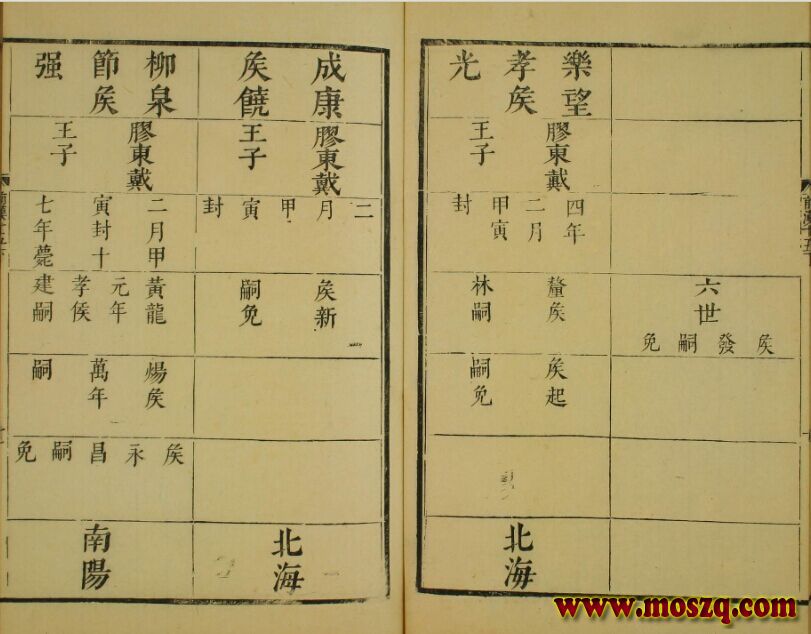 六世
矦發嗣免
樂望
孝矦
光
膠東戴
王子
四年
二月
甲寅
封
釐矦
林嗣
矦起
嗣免
北海
成康
矦饒
膠東戴
王子
二月甲寅封
矦新
嗣免
北海
柳泉
節矦
强
膠東戴
王子
二月甲
寅封十
七年薨
黃龍
元年
孝侯
建嗣
煬矦
萬年
嗣
矦永昌嗣免
南陽
www.moszq.com